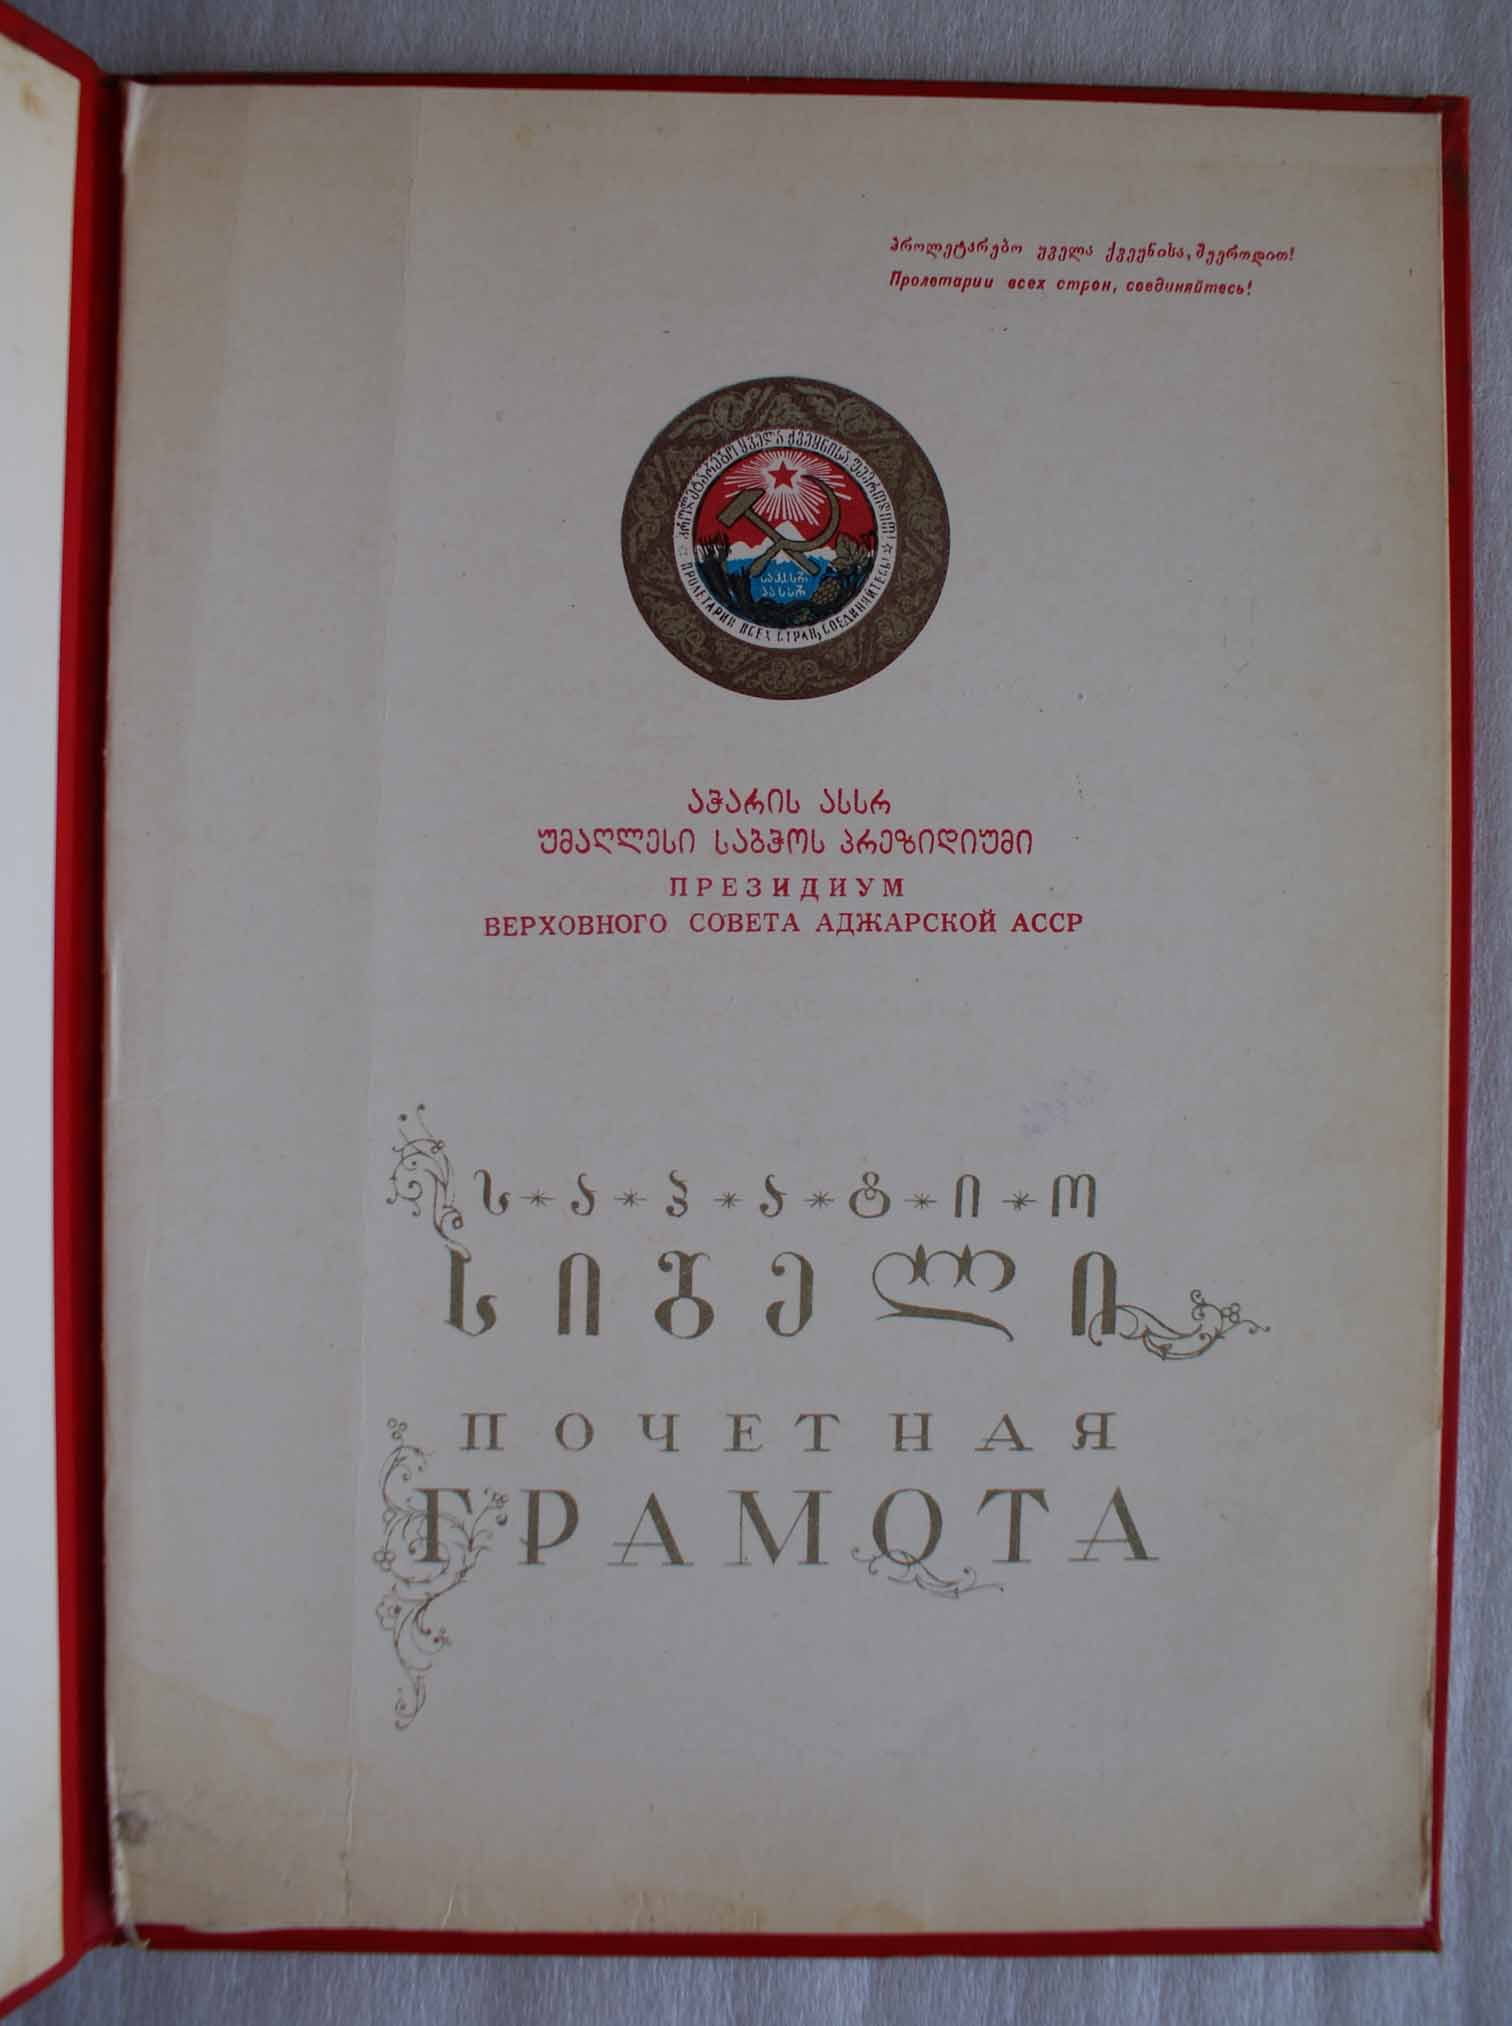 პროლეტარებო ყველა ქვეყნისა, შეერთდით!
Пролетарии всех стран, соединяйтесь!
პროლეტარებო ყველა ქვეყნისა შეერთდით!
საქ.სსრ
აასსრ
ПРОЛЕТАРИИ ВСЕХ СТРАН, СОЕДИНЯЙТЕСЬ!
აჭარის ასსრ
უმაღლესი საბჭოს პრეზიდიუმი
ПРЕЗИДИУМ
ВЕРХОВНОГО СОВЕТА АДЖАРСКОЙ АССР
საპატიო
სიგელი
ПОЧЕТНАЯ
ГРАМОТА